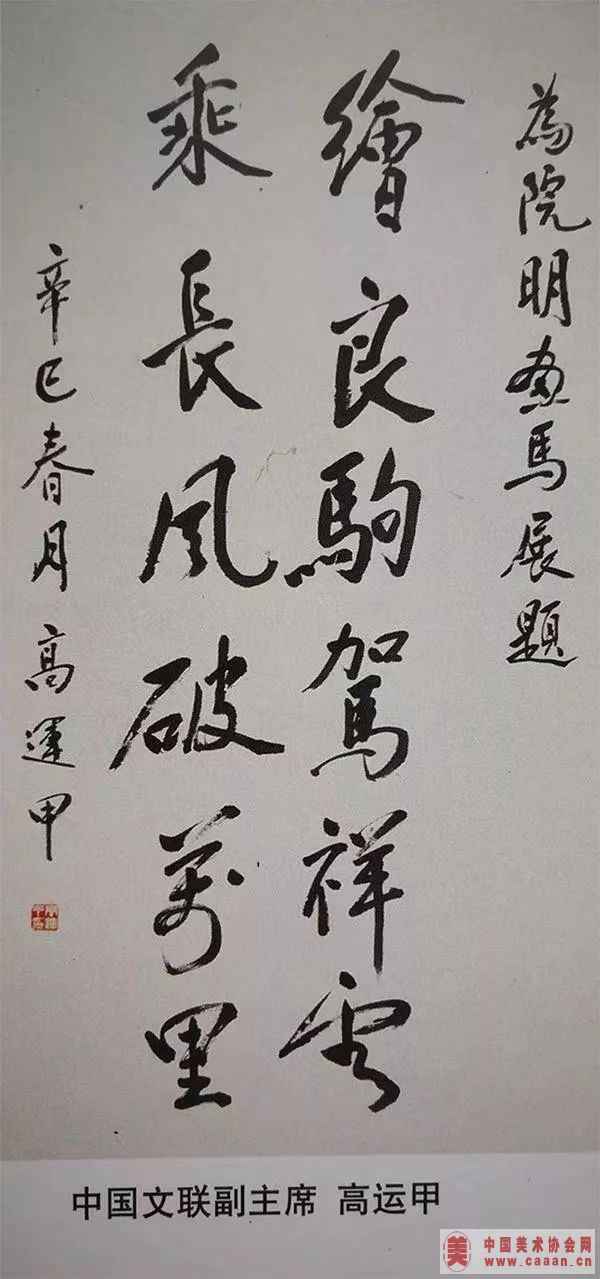 為院明畫馬展題
繪良駒駕祥雲
乘長風破萬里
辛巳春月 高運甲
中国文联副主席 高运甲
美 中国美术协会网
www.caaan.cn